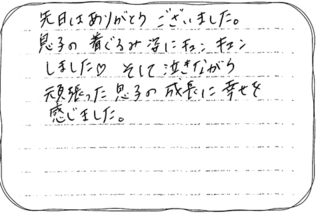 先日はありがとうございました。
息子の着ぐるみ姿にキュンキュン
しました♡ そして泣きながら
頑張った息子の成長に幸せを
感じました。